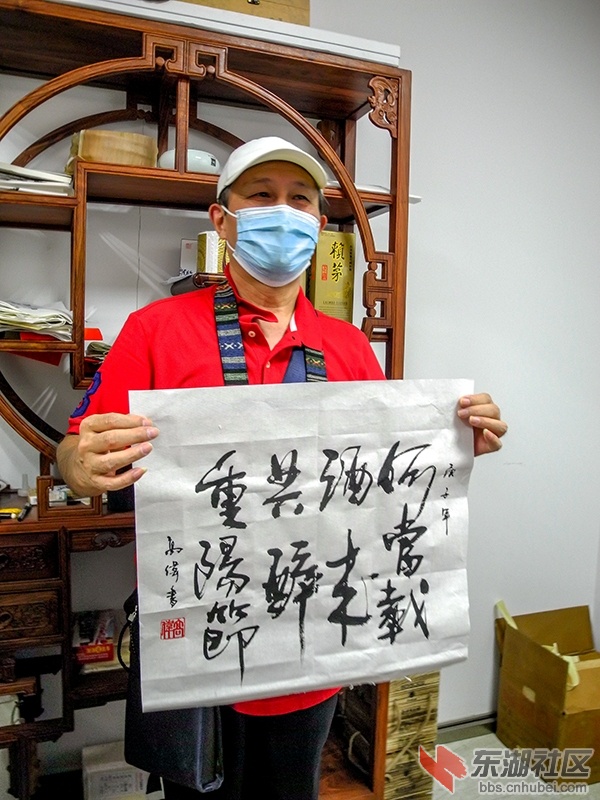 賴茅
庚子年
何當載
酒來
共醉
重陽節
东湖社区
bbs.cnhubei.com